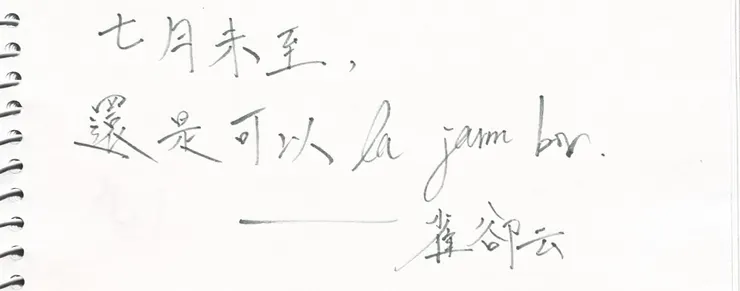 七月未至，
還是可以 la jam bor.
—— 翟卻云